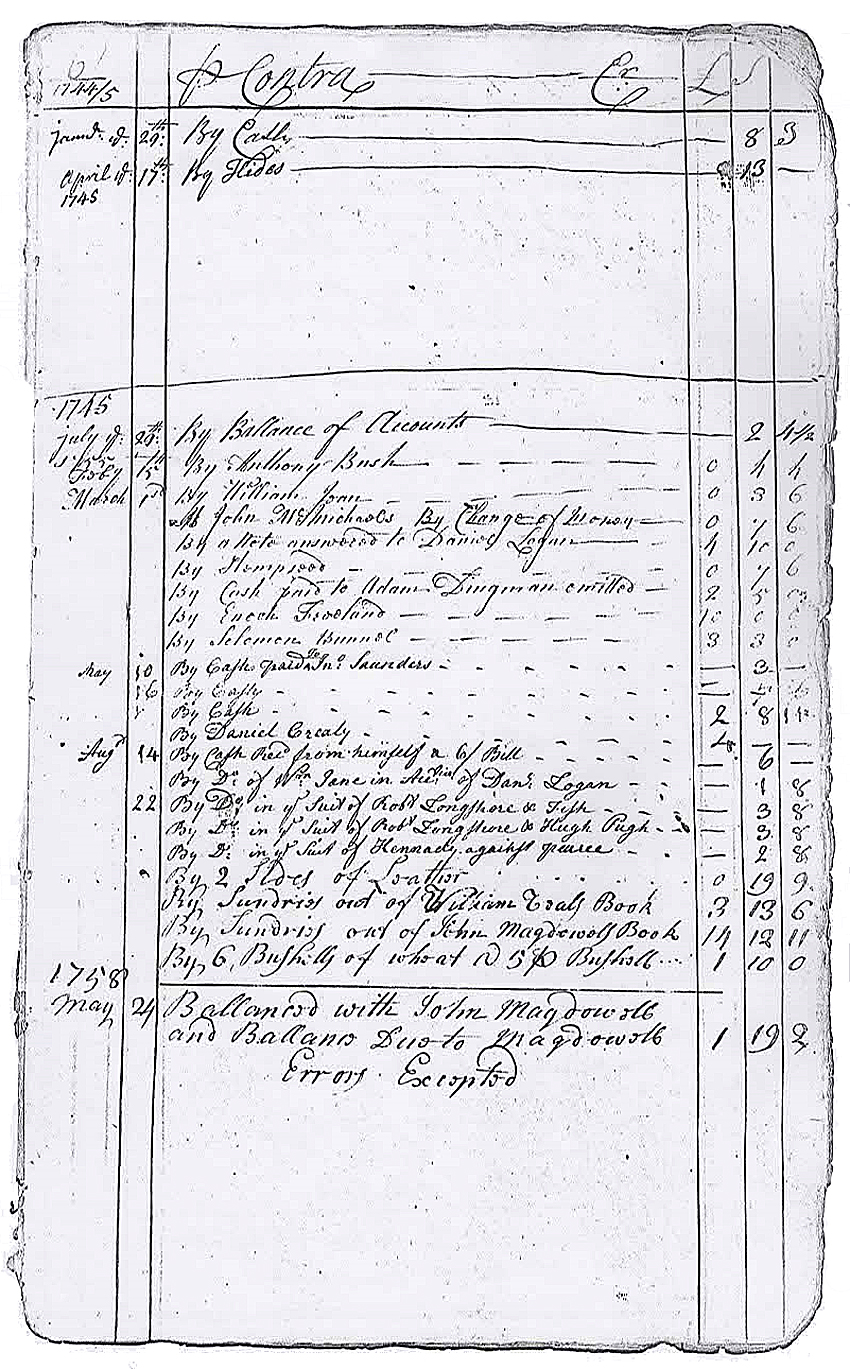 1744/5 ⅌ Contra Cr. L S
Janu. ye 29th By Cash 8 3
April ye 17th By Hides 13 —
1745
1745
July ye 29th By Ballance of Accounts 2 4½
Feby 15 By Anthony Bush 0 4 4
March By William 0 3 6
John McMichaels By Change of Money 0 7 6
By a Note answered to Daniel Logan 4 10 0
By Hempseed 0 7 6
By Cash paid to Adam Dingman omitted 2 5 0
By Enoch Freeland 10 0 0
By Solomon Bunnel 3 3 0
May 10 By Cash paid to Jno Saunders — 3 —
16 By Cash —
By Cash 2 8
By Daniel Crealy 4 — —
Augt 14 By Cash Recd from himself a 6/ Bill — 6 —
By Do of Wm Jane in of Danl Logan — 1 8
22 By Do in ye Suit of Robt Longshore & Fish — 3 8
By Do in ye Suit of Robt Longshore & Hugh Pugh — 3 8
By Do in ye Suit of Kennady against pearce — 2 8
By 2 Sides of Leather 0 19 9
By Sundries out of William Book 3 13 6
By Sundries out of John Magdowell Book 14 12 11
By 6 Bushells of wheat @ 5 ⅌ Bushell 1 10 0
1758
May 24 Ballanced with John Magdowell
and Ballance Due to Magdowell 1 19 2
Errors Excepted